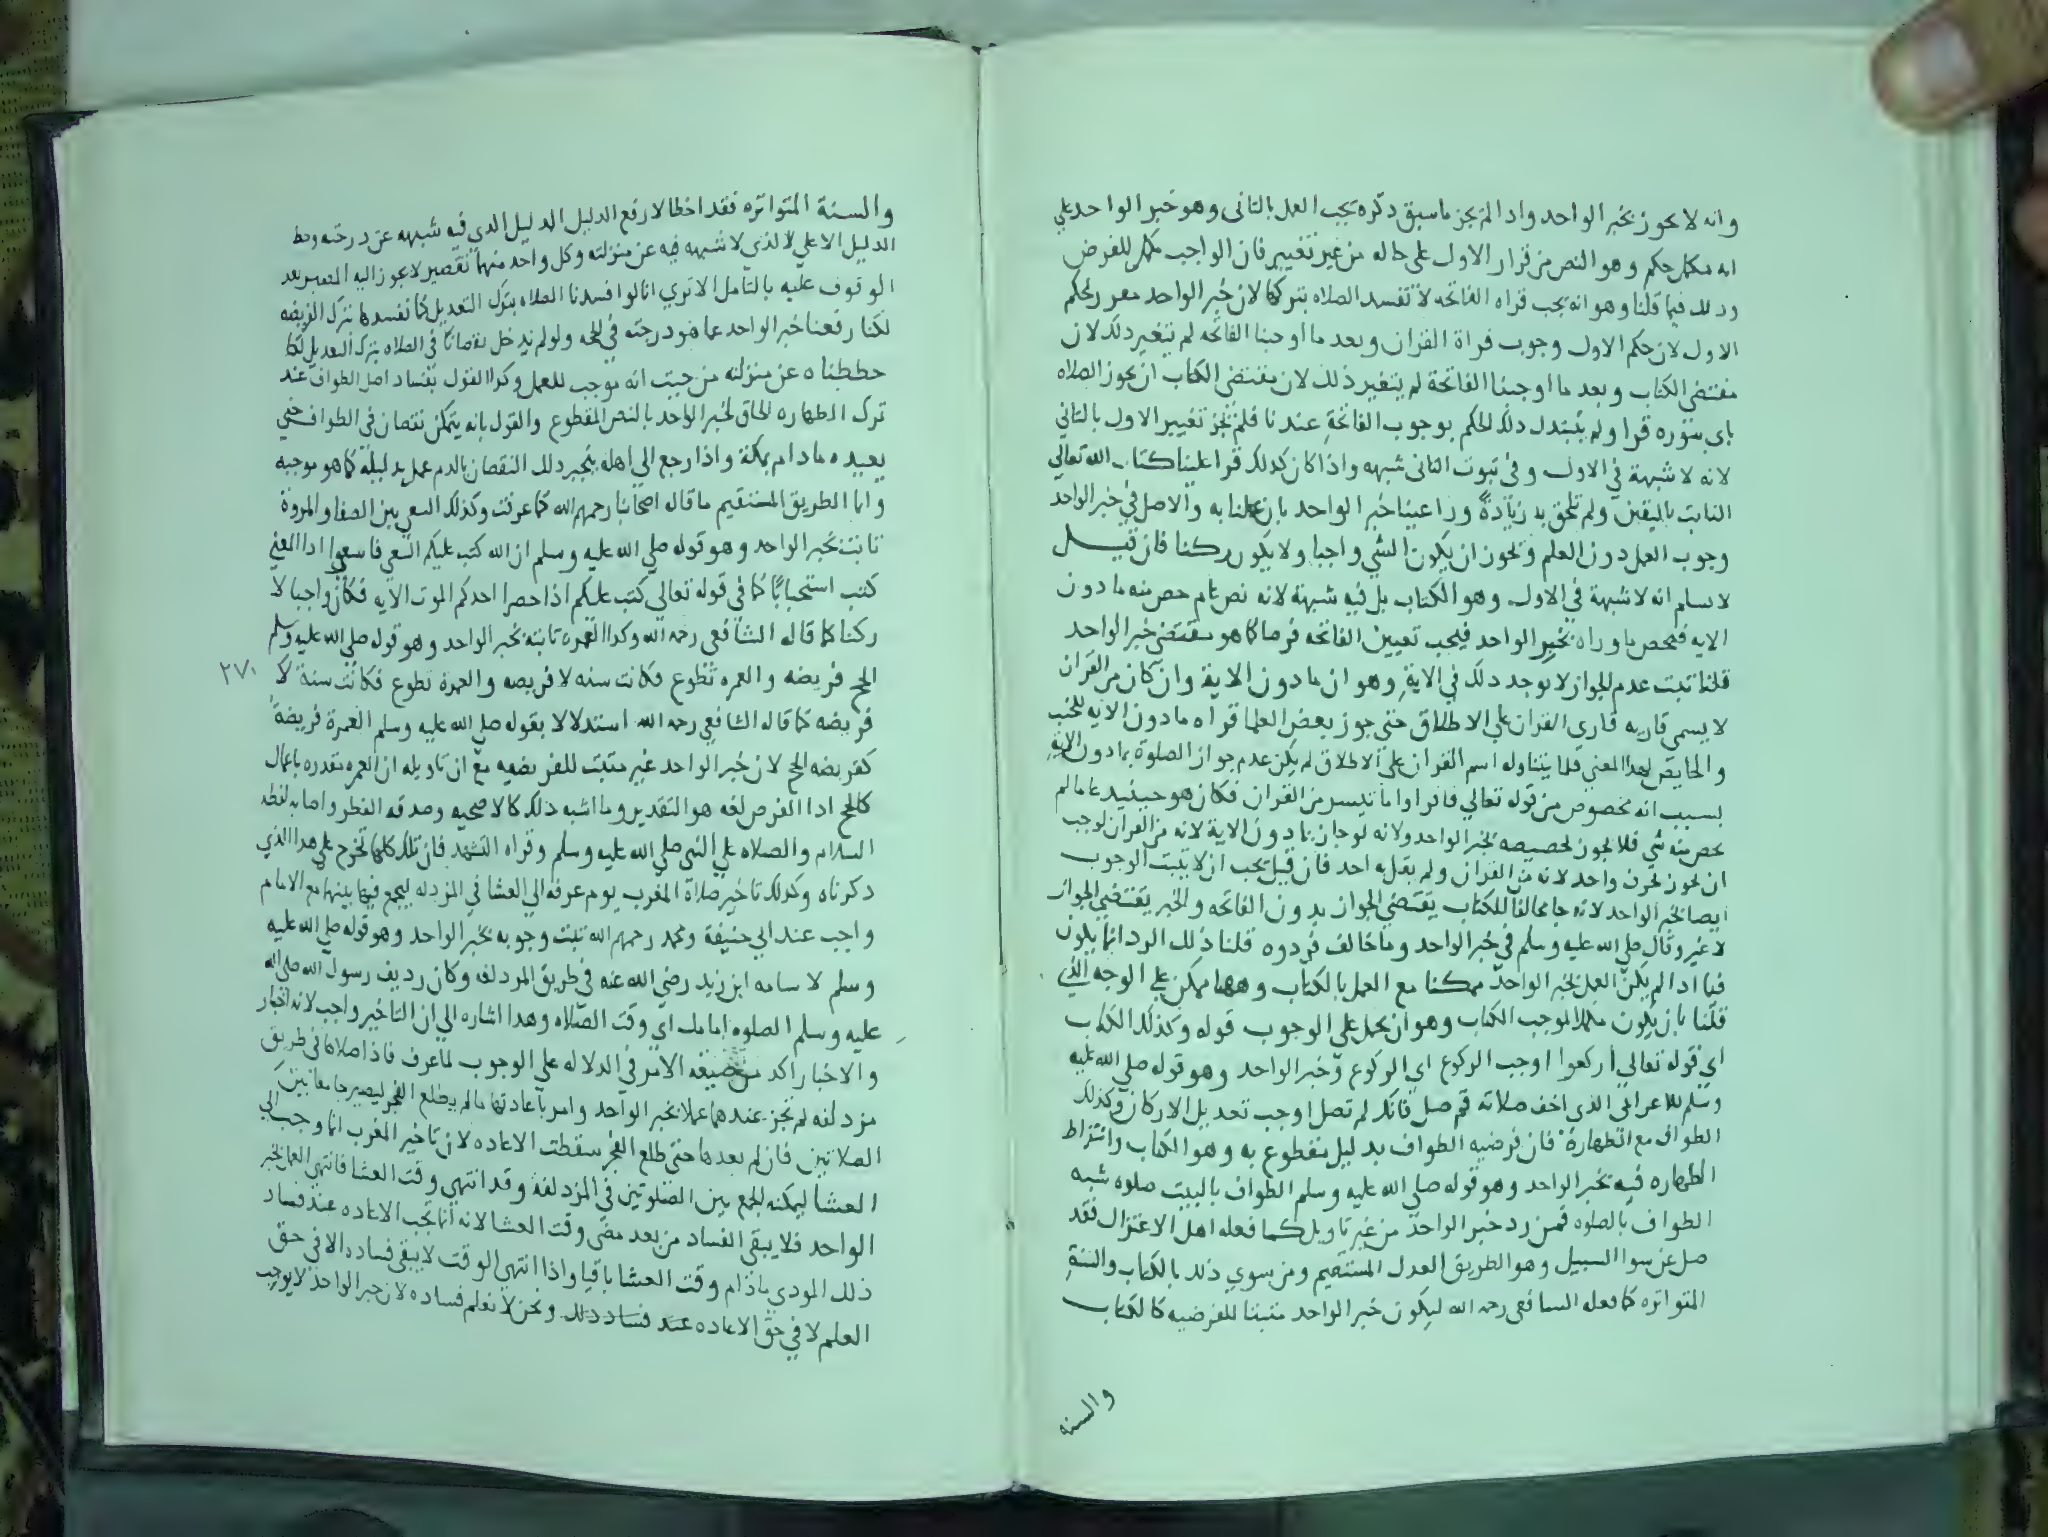 وانه لا يحوز بخبر الواحد واذا لم يجز ما سبق ذكره يجب العمل بالثانى وهو خبر الواحد على
انه مكمل حكم وهو النص من قرار الاول على حاله من غير تغيير فان الواجب مكمل للفرض
وذلك فيما قلنا وهو انه يجب قراه الفاتحه لا تفسد الصلاه بتركها لان خبر الواحد معرر لحكم
الاول لان حكم الاول وجوب قراة القران وبعد ما اوجبنا الفاتحه لم يتغير ذلك لان
مقتضى الكتاب وبعد ما اوجبنا الفاتحة لم يتغير ذلك لان مقتضى الكتاب ان يحوز الصلاه
باى سوره قرا ولم يتبدل ذلك الحكم بوجوب الفاتحة عندنا فلم نجز تغيير الاول بالثانى
لانه لا شبهة في الاول وفي ثبوت الثانى شبهه واذا كان كذلك قرا علينا كتاب الله تعالى
الثابت باليقين ولم نلحق به زيادة وراعينا خبر الواحد بان عملنا به والاصل في خبر الواحد
وجوب العمل دون العلم ويحوز ان يكون الشي واجبا ولا يكون ركنا فان قيل
لا نسلم انه لا شبهة في الاول وهو الكتاب بل فيه شبهة لانه نص عام خص منه ما دون
الايه فيخص ما وراه بخبر الواحد فيجب تعيين الفاتحه فرضا كما هو مقتضى خبر الواحد
قلنا ثبت عدم الجواز لا يوجد ذلك في الاية وهو ان ما دون الاية وان كان من القران
لا يسمى قاريه قارى القران على الاطلاق حتى جوز بعض العلما قراه ما دون الايه للجنب
والحايض لهذا المعنى فلما يتناوله اسم القران على الاطلاق لم يكن عدم جواز الصلوة بما دون الاية
بسبب انه مخصوص من قوله تعالي فاقراوا ما تيسر من القران فكان هو حينيذ عاما لم
يخص منه شي فلا يجوز تخصيصه بخبر الواحد ولانه لو جاز بما دون الاية لانه من القران لوجب
ان يحوز بحرف واحد لانه من القران ولم يقل به احد فان قيل يجب ان لا يثبت الوجوب
ايضا بخبر الواحد لانه جا مخالفا للكتاب يقتضي الجواز بدون الفاتحه والخبر يقتضي الجواز
لا غير وقال صلى الله عليه وسلم في خبر الواحد وما خالف فردوه قلنا ذلك الرد انما يكون
فيما اذا لم يكن العمل بخبر الواحد ممكنا مع العمل بالكتاب وههنا يمكن على الوجه الذي
قلنا بان يكون مكملا لموجب الكتاب وهو ان يحمل على الوجوب قوله وكذلك الكتاب
اي قوله تعالي اركعوا اوجب الركوع اي الركوع وخبر الواحد وهو قوله صلى الله عليه
وسلم للاعرابى الذى اخف صلاته قم صل فانك لم تصل اوجب تعديل الاركان وكذلك
الطواف مع الطهارة فان فرضيه الطواف بدليل مقطوع به وهو الكتاب واشتراط
الطهاره فيه بخبر الواحد وهو قوله صلى الله عليه وسلم الطواف بالبيت صلوه شبه
الطواف بالصلوه فمن رد خبر الواحد من غير تاويل كما فعله اهل الاعتزال فقد
ضل عن سوا السبيل وهو الطريق العدل المستقيم ومن سوي ذلك بالكتاب والسنة
المتواتره كما فعله الشافعى رحمه الله ليكون خبر الواحد مثبتا للفرضيه كالكتاب
والسنه
والسنة المتواتره فقد اخطا لا رفع الدليل الدليل الذي فيه شبهه عن درجته وحط
الدليل الاعلي الذي لا شبهه فيه عن منزلته وكل واحد منهما تقصير لا يجوز اليه المصير بعد
الوقوف عليه بالتامل الا تري انا لو افسدنا الصلاه بترك التعديل كما نفسدها بترك الفريضه
لكنا رفعنا خبر الواحد عما هو درجته في الحجه ولو لم ندخل نقصانا في الصلاه بترك التعديل لكنا
حططناه عن منزلته من حيث انه موجب للعمل وكذا القول بفساد اصل الطواف عند
ترك الطهاره الحاق لخبر الواحد بالنص المقطوع والقول بانه يتمكن نقصان في الطواف حتى
يعيده ما دام بمكة واذا رجع الي اهله ينجبر ذلك النقصان بالدم عمل بدليله كما هو موجبه
وانما الطريق المستقيم ما قاله اصحابنا رحمهم الله كما عرفت وكذلك السعي بين الصفا والمروة
ثابت بخبر الواحد وهو قوله صلى الله عليه وسلم ان الله كتب عليكم السعي فاسعوا اذ المعنى
كتب استحبابا كما في قوله تعالي كتب عليكم اذا حضر احدكم الموت الايه فكان واجبا لا
ركنا كما قاله الشافعي رحمه الله وكذا العمرة ثابتة بخبر الواحد وهو قوله صلى الله عليه وسلم
الحج فريضه والعمره تطوع فكانت سنه لا فريضه والعمرة تطوع فكانت سنة لا
٢٧٠
فريضه كما قاله الشافعي رحمه الله استدلالا بقوله صلى الله عليه وسلم العمرة فريضة
كفريضه الحج لان خبر الواحد غير مثبت للفرضيه مع ان تاويله ان العمره مقدره باعمال
كالحج اذ الفرض لغه هو التقدير وما اشبه ذلك كالاضحيه وصدقه الفطر واصابه لفظه
السلام والصلاه علي النبي صلى الله عليه وسلم وقراه التشهد فان تلك كلها تخرج على هذا الذي
ذكرناه وكذلك تاخير صلاة المغرب يوم عرفه الي العشا في المزدلفه ليجمع فيما بينهما مع الامام
واجب عند ابي حنيفة ومحمد رحمهم الله ثبت وجوبه بخبر الواحد وهو قوله صلى الله عليه
وسلم لاسامه ابن زيد رضي الله عنه في طريق المزدلفه وكان رديف رسول الله صلى الله
عليه وسلم الصلوه امامك اي وقت الصلاه وهذا اشاره الي ان التاخير واجب لانه اخبار
والاخبار اكد من صيغه الامر في الدلاله علي الوجوب لما عرف فاذا صلاها في طريق
مزدلفه لم تجز عندهما عملا بخبر الواحد وامر باعادتها ما لم يطلع الفجر ليصير جامعا بين
الصلاتين فان لم يعدها حتى طلع الفجر سقطت الاعاده لان تاخير المغرب انما وجب الي
العشا ليمكنه الجمع بين الصلوتين في المزدلفة وقد انتهى وقت العشا فانتهى العمل بخبر
الواحد فلا يبقى الفساد من بعد مضى وقت العشا لانه انما تجب الاعاده عند فساد
ذلك المودي ما دام وقت العشا باقيا واذا انتهى الوقت لا يبقى فساده الا في حق
العلم لا في حق الاعاده عند فساد ذلك ونحن لا نعلم فساده لان خبر الواحد لا يوجب